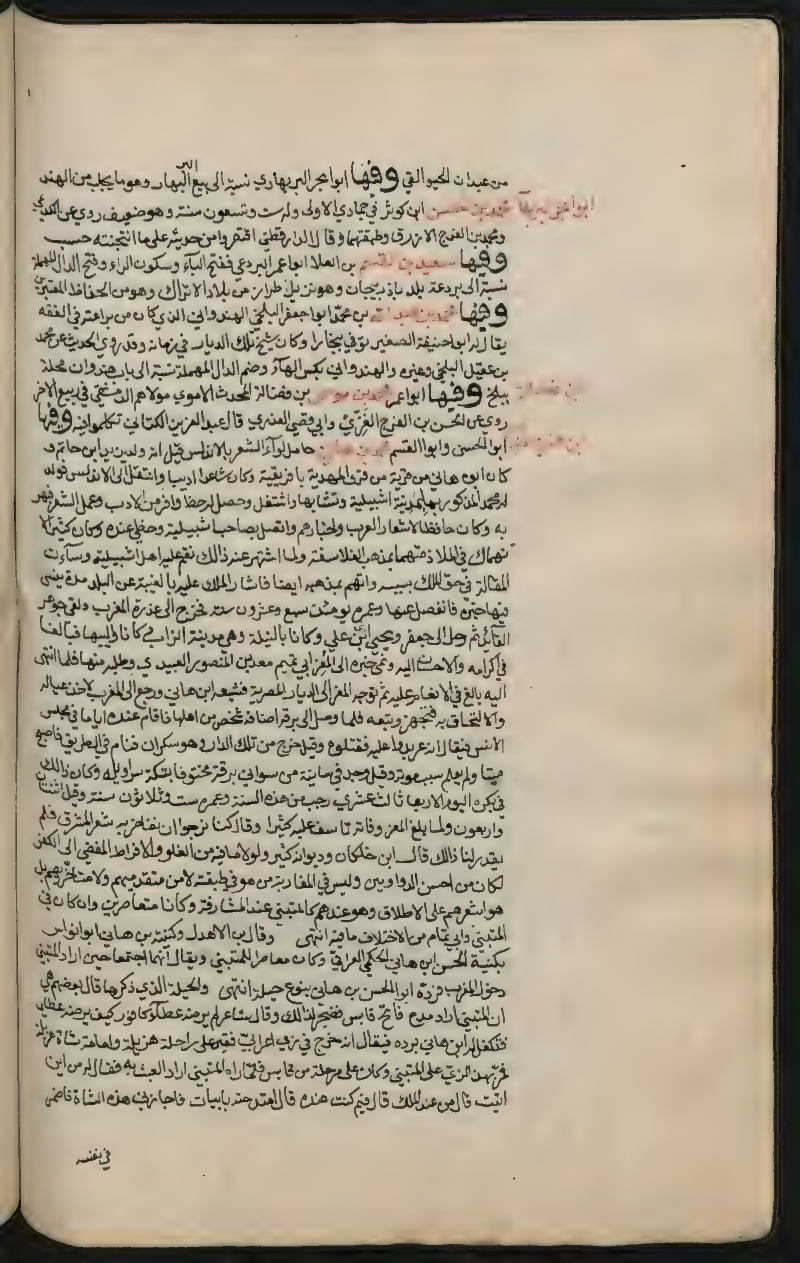 من عبدان الحيوالقي وفيها ابوا بحر البربهاري نسبة الى بيع البربهار وهو ما يجلب من الهند
محمد بن حسن ابن كوثر في جمادي الاولى وله ست وتسعون سنة وهو ضعيف روي عن الكديمي
ومحمد بن الفرج الازرق وطبقتهما وقال الدارقطني اقتصروا من حديثه على ما انتخبته حسب
وفيها سعيد بن القسم بن العلا ابوا عمر البردعي ففتح البآء وسكون الرآء وفتح الدال المهملة
نسبة الى بردعة بلد باذربيجان وهو نزيل طراز من بلاد الاتراك وهو من الحفاظ المعتبرين
وفيها محمد بن عبد الله بن محمد ابوا جعفر البلخي الهندواني الذي كان من براعته في الفقه
يقال له ابوا حنيفة الصغير توفي ببخارا وكان شيخ تلك الديار في زمانه وقد روي الحديث عن محمد
بن عقيل البلخي وغيره والهندواني بكسر الهآء وضم الدال المهملة نسبة الى باب هندوان محلة
ببلخ وفيها ابوا عمر محمد بن موسى بن فضالة المحدث الاموي مولاهم الدمشقي في ربيع الاخر
روي عن الحسن بن الفرج الغزي وابي قصي العذري قال عبد العزيز الكتاني تكلموا فيه وفيها
أبوا الحسن وابوا القسم محمد بن هاني حامل لوآء الشعر بالاندلس قيل انه ولد يزيد ابن حاتم و
كان ابوه هاني من قرية من قرى المهدية بافريقية وكان شاعرا اديبا وانتقل الى الاندلس فولد
له محمد المذكور بها بمدينة اشبيلية ونشا بها واشتغل وحصل له حظ وافر من الادب وعمل الشعر فمهر
به وكان حافظا لاشعار العرب واخبارهم واتصل بصاحب اشبيلية وحظي عنده وكان كثير الا
نهماك في الملاذ متهما بمذهب الفلاسفة ولما اشتهر عنه ذالك نقم عليه اهل اشبيلية وسآءت
المقالة في حق الملك بسببه واتهم بمذهبه ايضا فاشار الملك عليه بالغيبة عن البلد مدة ينسى
فيها خبره فانفصل عنها وعمره يومئذ سبع وعشرون سنة فخرج الى عدوة المغرب ولقي جوهر
القآئد ثم رحل الى جعفر ويحيى ابن علي وكانا بالمسيلة وهي مدينة الزاب وكانا واليها فبالغا
في اكرامه والاحسان اليه ونمى خبره الى المعز ابي تميم معد بن المنصور العبيدي وطلبه منهما فلما انتهى
اليه بالغ في الانعام عليه ثم توجه المعز الى الديار المصرية فشيعه ابن هاني ورجع الى المغرب لاخذ عياله
والالتحاق به فتجهز وتبعه فلما وصل الى برقة اضافه شخص من اهلها فاقام عنده اياما في مجلس
الانس فيقال انهم عربدوا عليه فقتلوه وقيل خرج من تلك الدار وهو سكران فنام في الطريق فاصبح
ميتا ولم يعلم سبب موته وقيل وجد في سانية من سواني برقة مخنوقا بتكة سراويله وكان ذالك
في بكرة اليوم الاربعا ثالث عشري رجب من هذه السنة وعمره ست وثلاثون سنة وقيل اثنتان
واربعون ولما بلغ المعز وفاته تاسف عليه كثيرا وقال كنا نرجوا ان نفاخر به شعر المشرق فلم
يقدر لنا ذالك قال ابن خلكان وديوانه كثير ولولا ما فيه من الغلو والافراط المفضي الى الكفر
لكان من احسن الدواوين وليس في المغاربة من هو في طبقته لا من متقدميهم ولا متاخريهم بل
هو اشعرهم على الاطلاق وهو عندهم كالمتنبي عند المشارقة وكانا متعاصرين وان كان في
المتنبي وابي تمام من الاختلاف ما فيه انتهى وقال بن الاهدل وكنية بن هاني ابوا نواس
بكنية الحسن ابن هاني الحكمي العراقي وكان معاصر المتنبي ويقال انهما اجتمعا حين اراد المتنبي
دخول المغرب فرده ابوا الحسن بن هاني بنوع حيلة انتهى والحيلة الذي ذكرها قال بعضهم هي
ان المتنبي اراد مدح فاتح قابس فضجر لذالك وقال شاعر لم يرضه عطا كافور كيف يرضه عطاي
فتكفل له ابن هاني برده فيقال انه خرج في زي اعرابي فقير على راحلة هزيلة وامامه شاة هزيلة
فمر بهذا الزي على المتنبي وكان على مرحلة من قابس فلما راه المتنبي اراد العبث به فقال له من اين
اتيت قال من عند الملك قال فيم كنت عنده قال امتدحته بابيات فاجازني هذه الشاة فاضمر
في نفسه